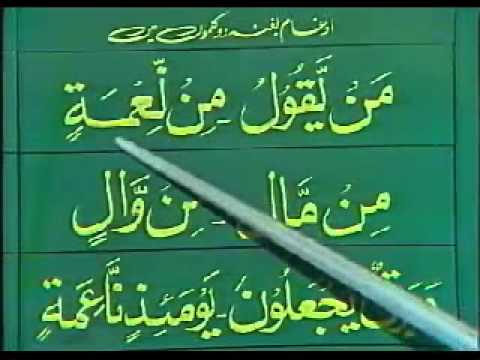 ادغام بغنہ دو کلموں میں
مَنْ يَّقُوْلُ - مِنْ نِّعْمَةٍ
مِنْ مَّالٍ - مِنْ وَّالٍ
وَبَرْقٌ يَّجْعَلُوْنَ - يَوْمَئِذٍ نَّاعِمَةٍ